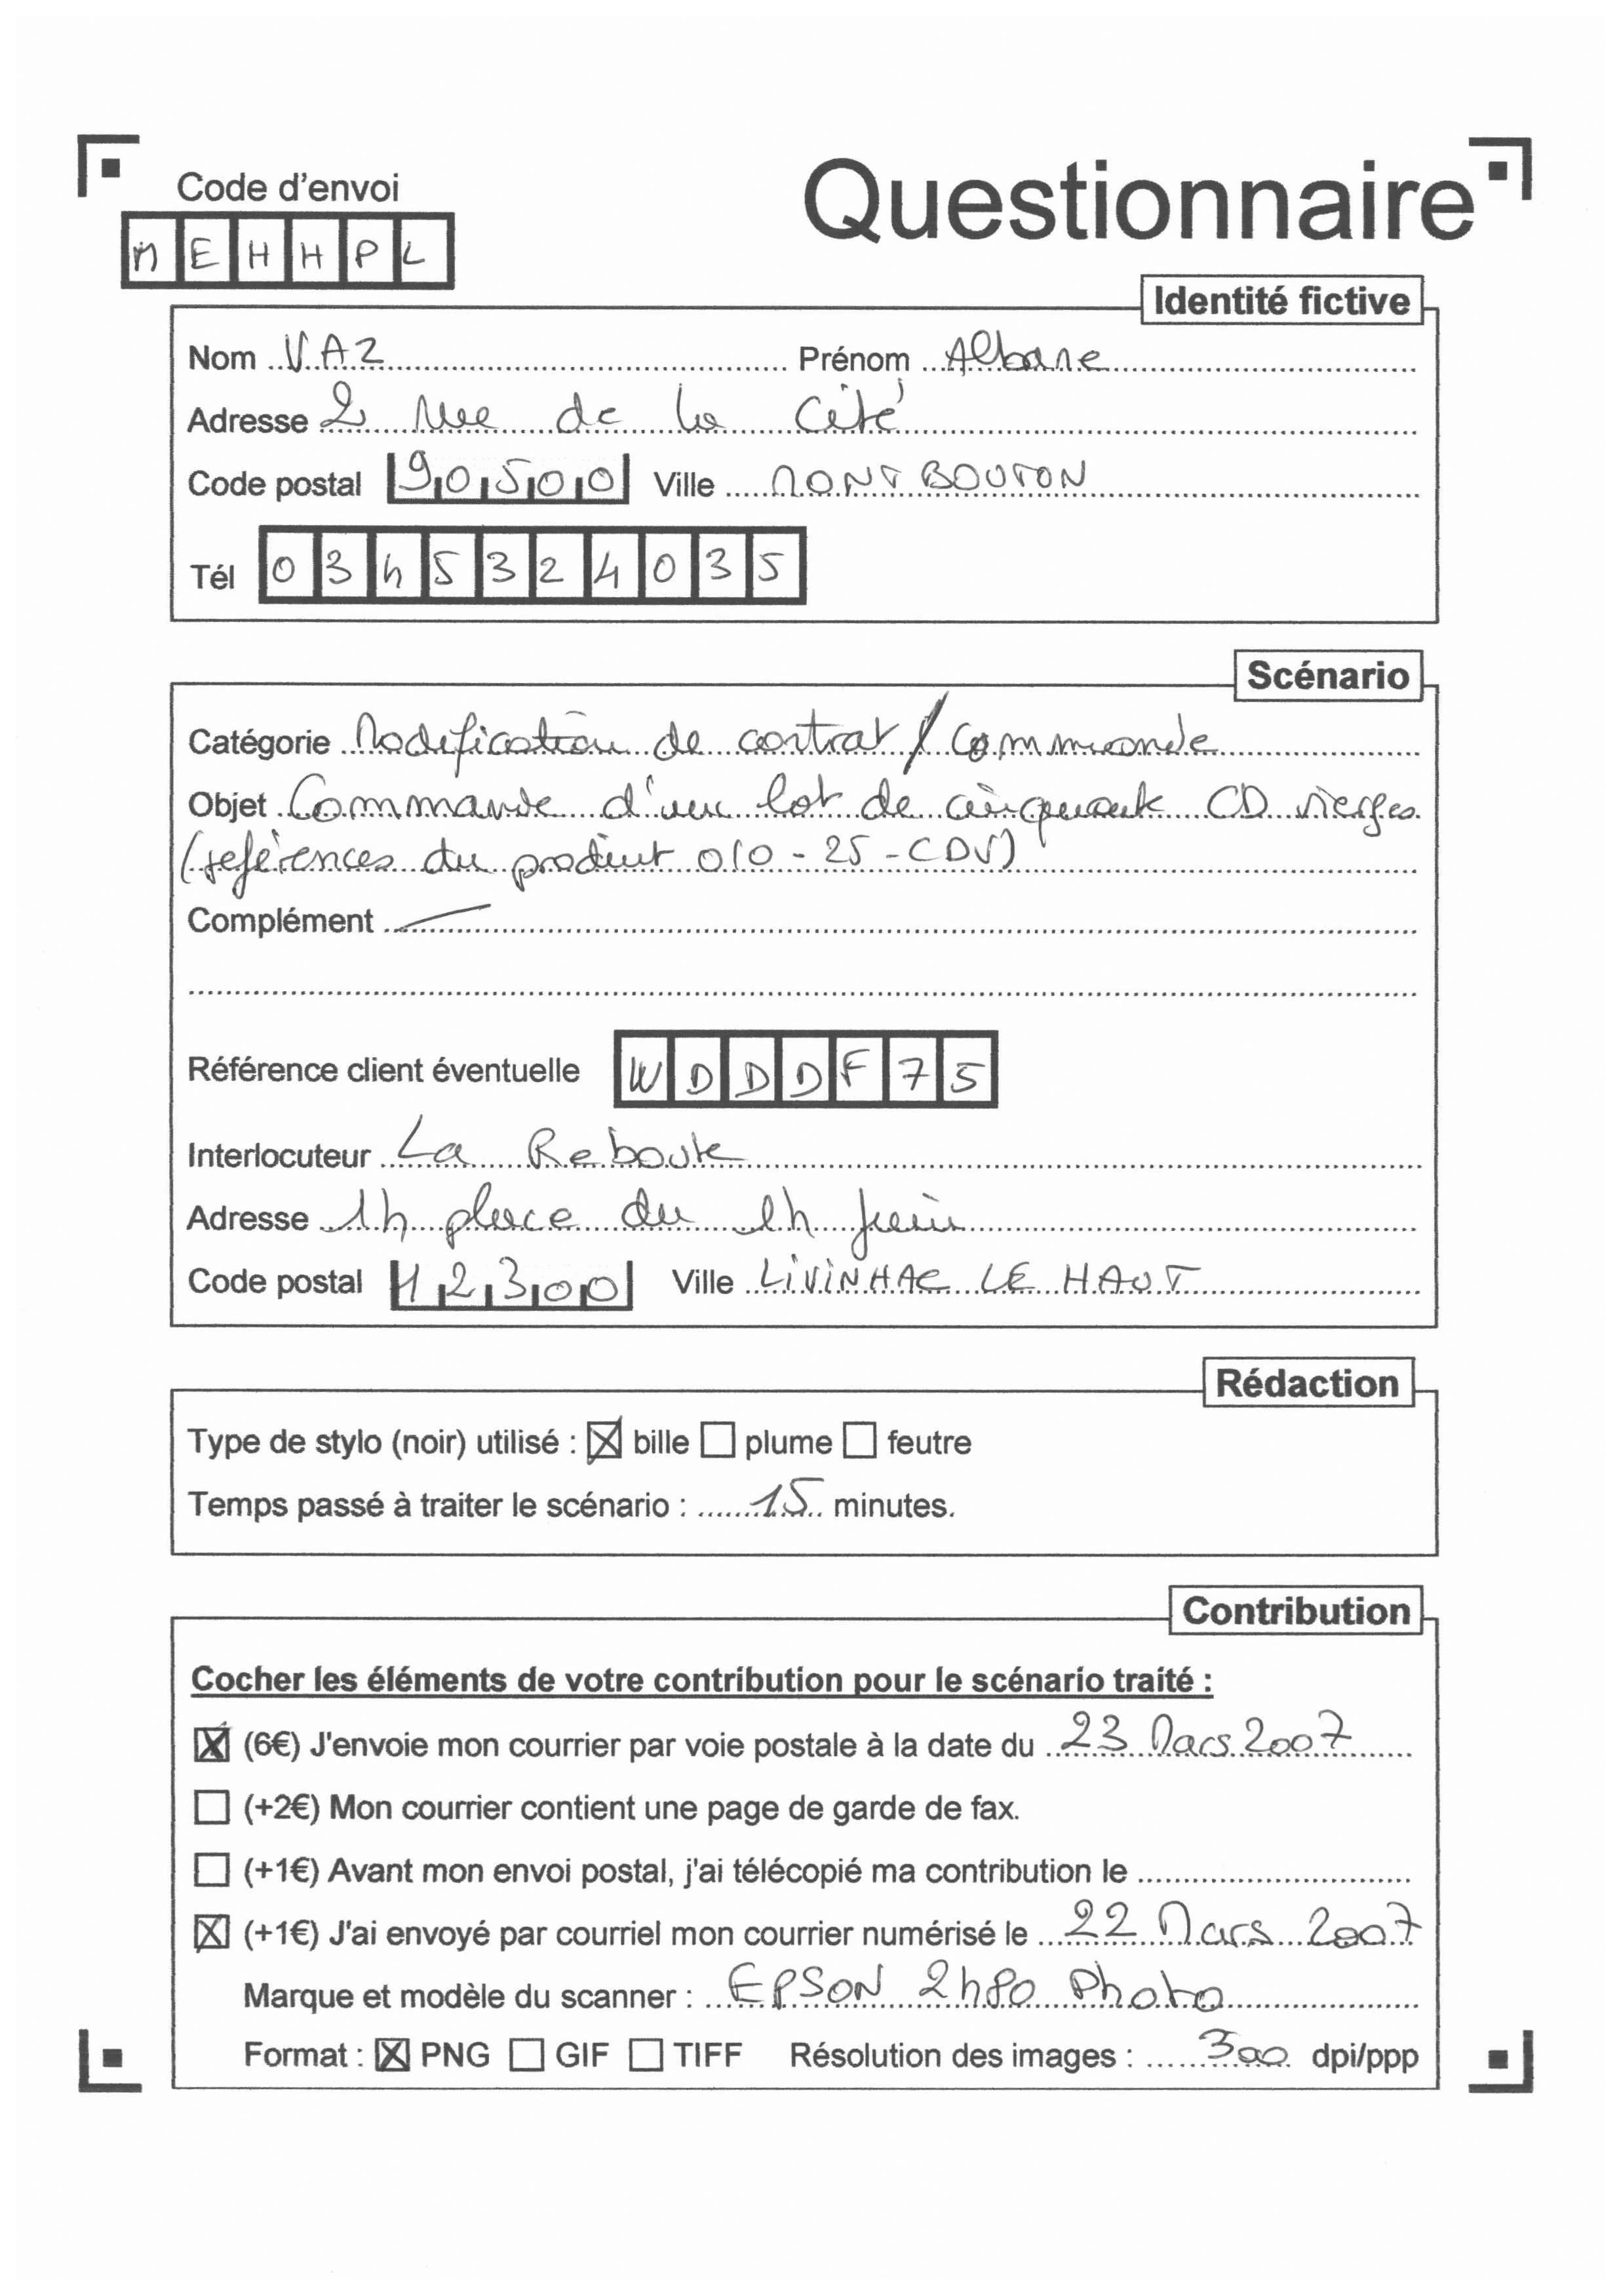 Code d'envoi
Questionnaire
MEHHPL
Identité fictive
Nom VAZ Prénom Albane
Adresse 2 rue de la Cité
Code postal 90500 Ville MONTBOUTON
Tél 0345324035
Scénario
Catégorie Modification de contrat / commande
Objet Commande d'un lot de cinquante CD vierges
(références du produit 010-25-CDV)
Complément
Référence client éventuelle WDDDF75
Interlocuteur La Reboute
Adresse 14 place du 14 juin
Code postal 12300 Ville LIVINHAC LE HAUT
Rédaction
Type de stylo (noir) utilisé : ☒ bille ☐ plume ☐ feutre
Temps passé à traiter le scénario : 15 minutes.
Contribution
Cocher les éléments de votre contribution pour le scénario traité :
☒ (6€) J'envoie mon courrier par voie postale à la date du 23 Mars 2007
☐ (+2€) Mon courrier contient une page de garde de fax.
☐ (+1€) Avant mon envoi postal, j'ai télécopié ma contribution le
☒ (+1€) J'ai envoyé par courriel mon courrier numérisé le 22 Mars 2007
Marque et modèle du scanner : EPSON 2480 Photo
Format : ☒ PNG ☐ GIF ☐ TIFF Résolution des images : 300 dpi/ppp